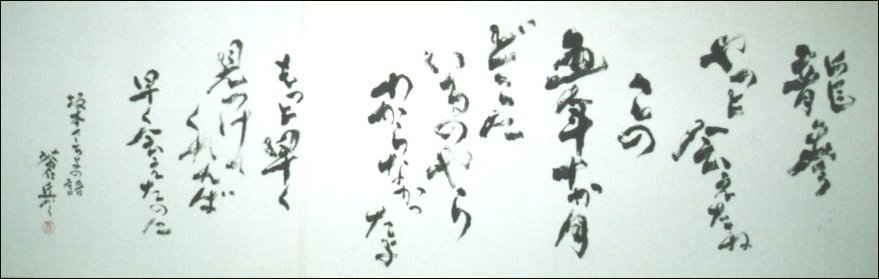 やっと会えたね
十か月
どこに
いるのやら
わからなかったよ
もっと早く
見つけて
くれれば
早く会えたのに
坂本さちよの語